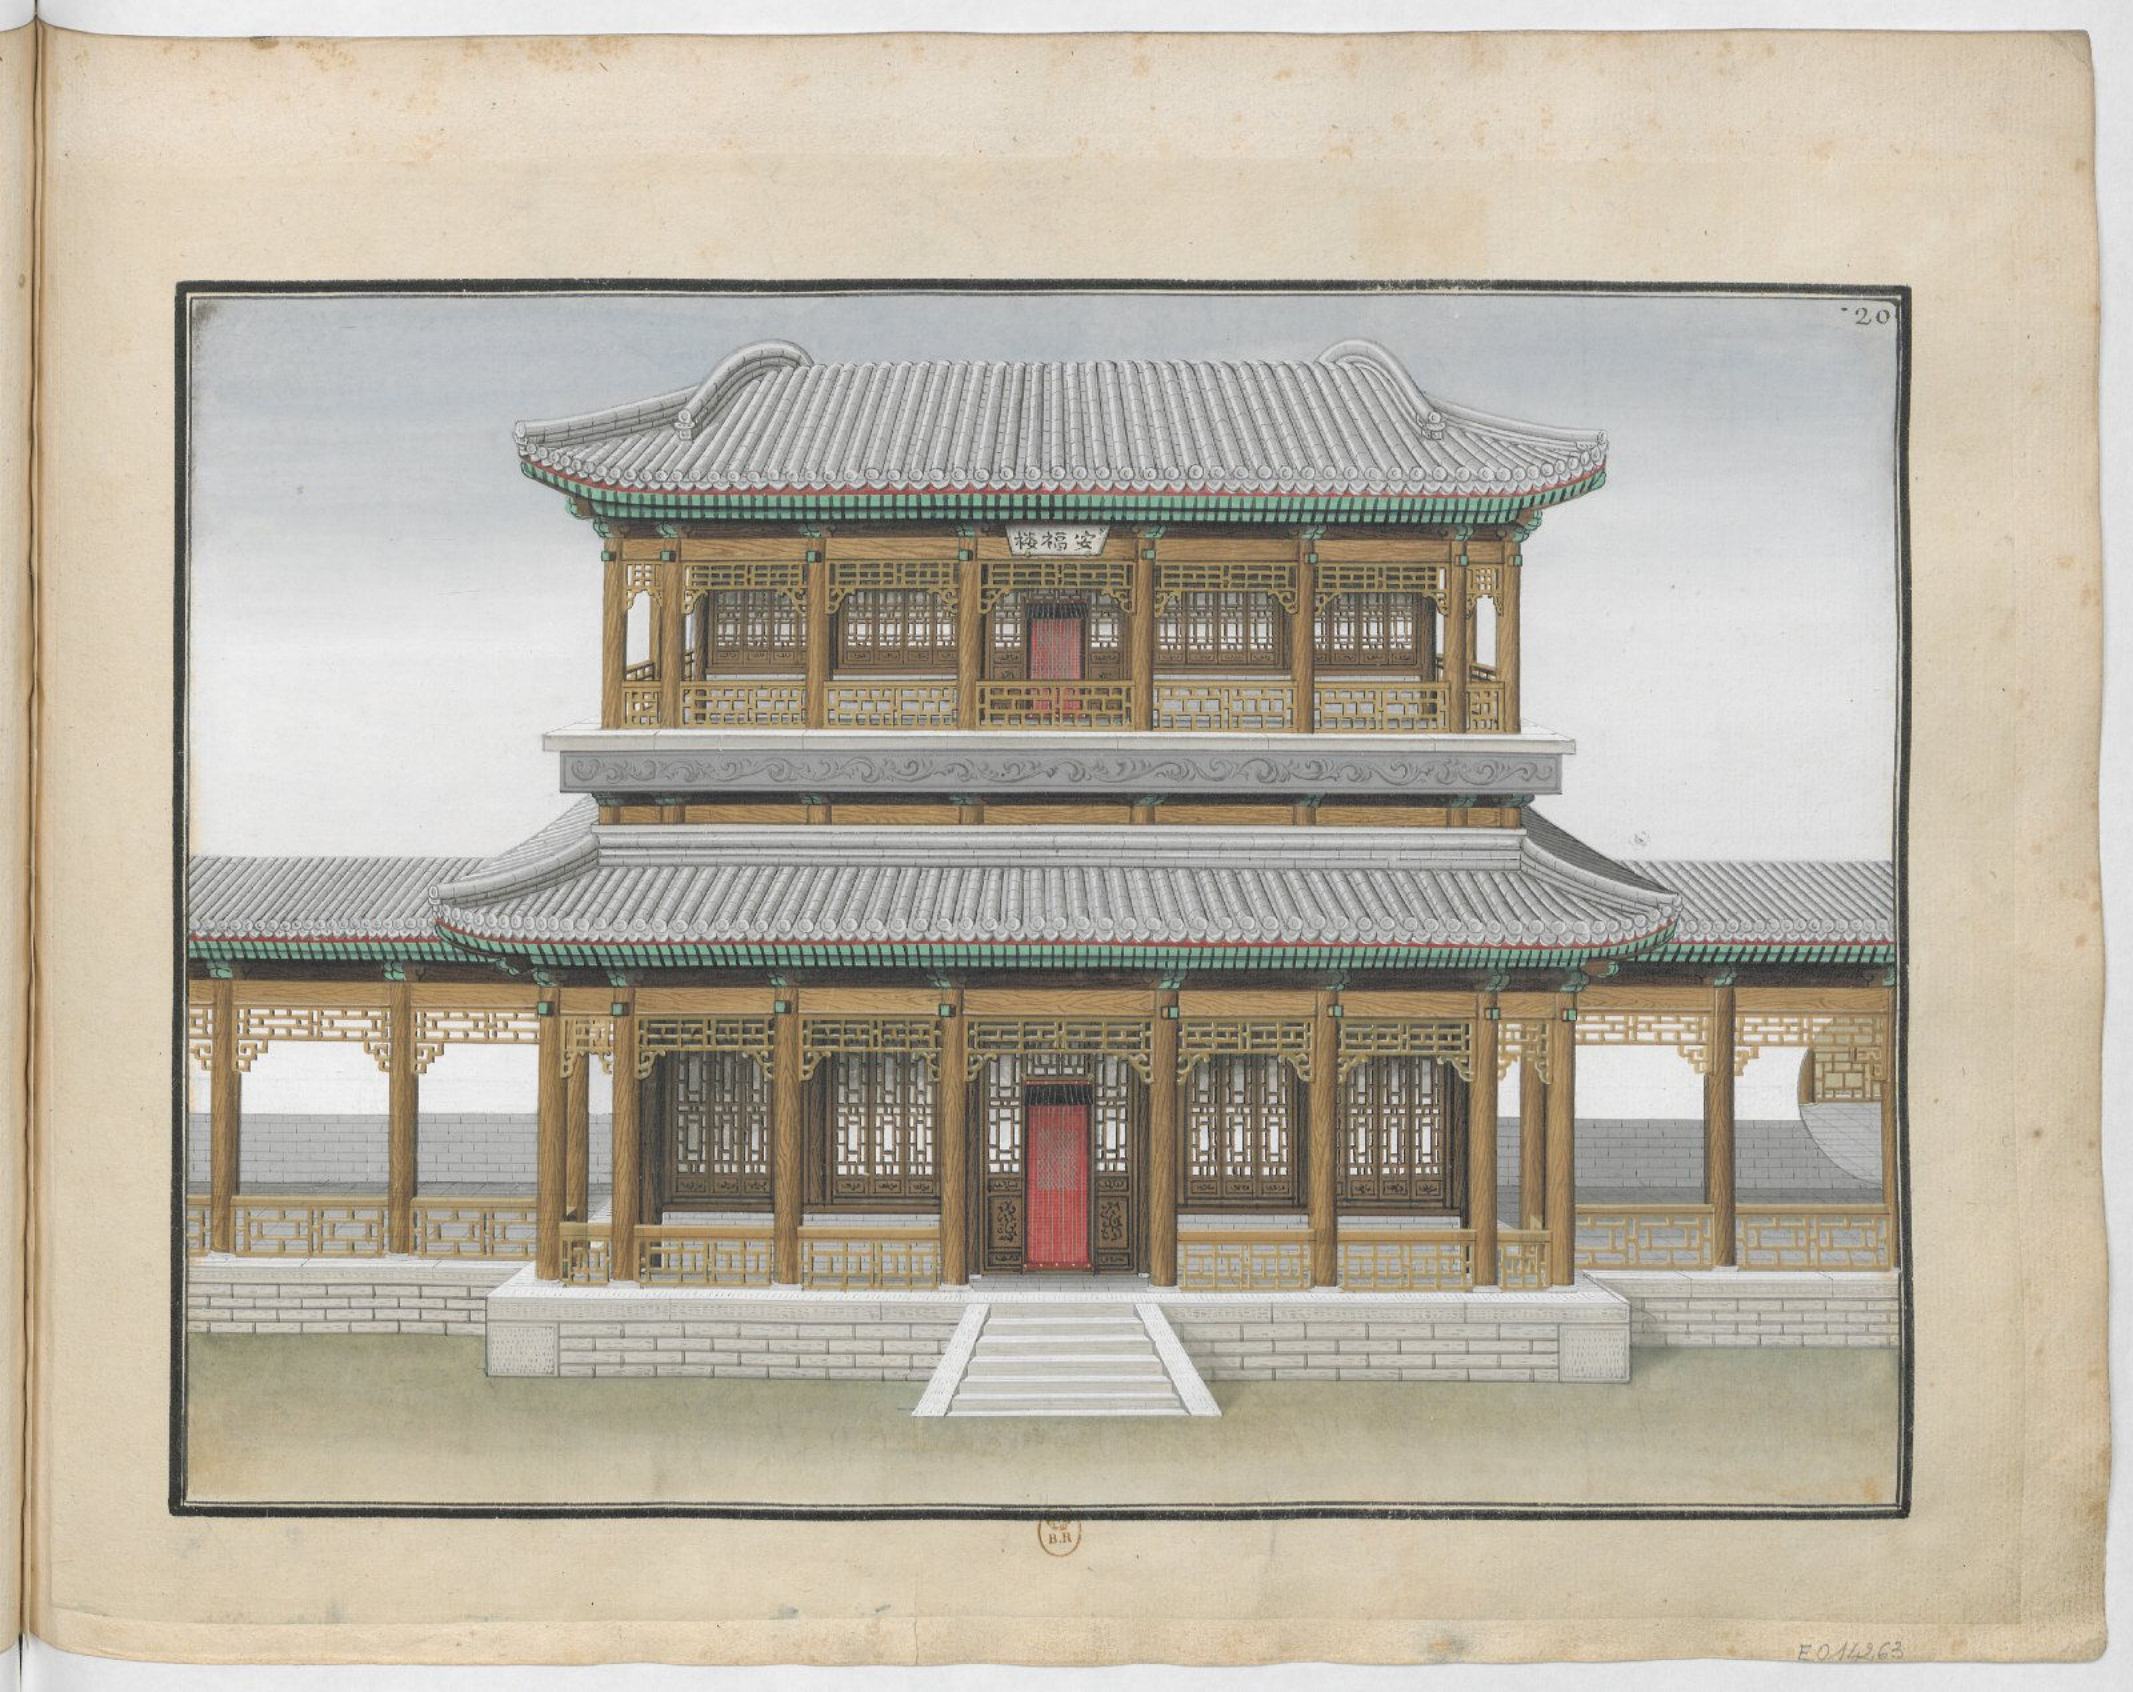 20
安福楼
B.R
E014263